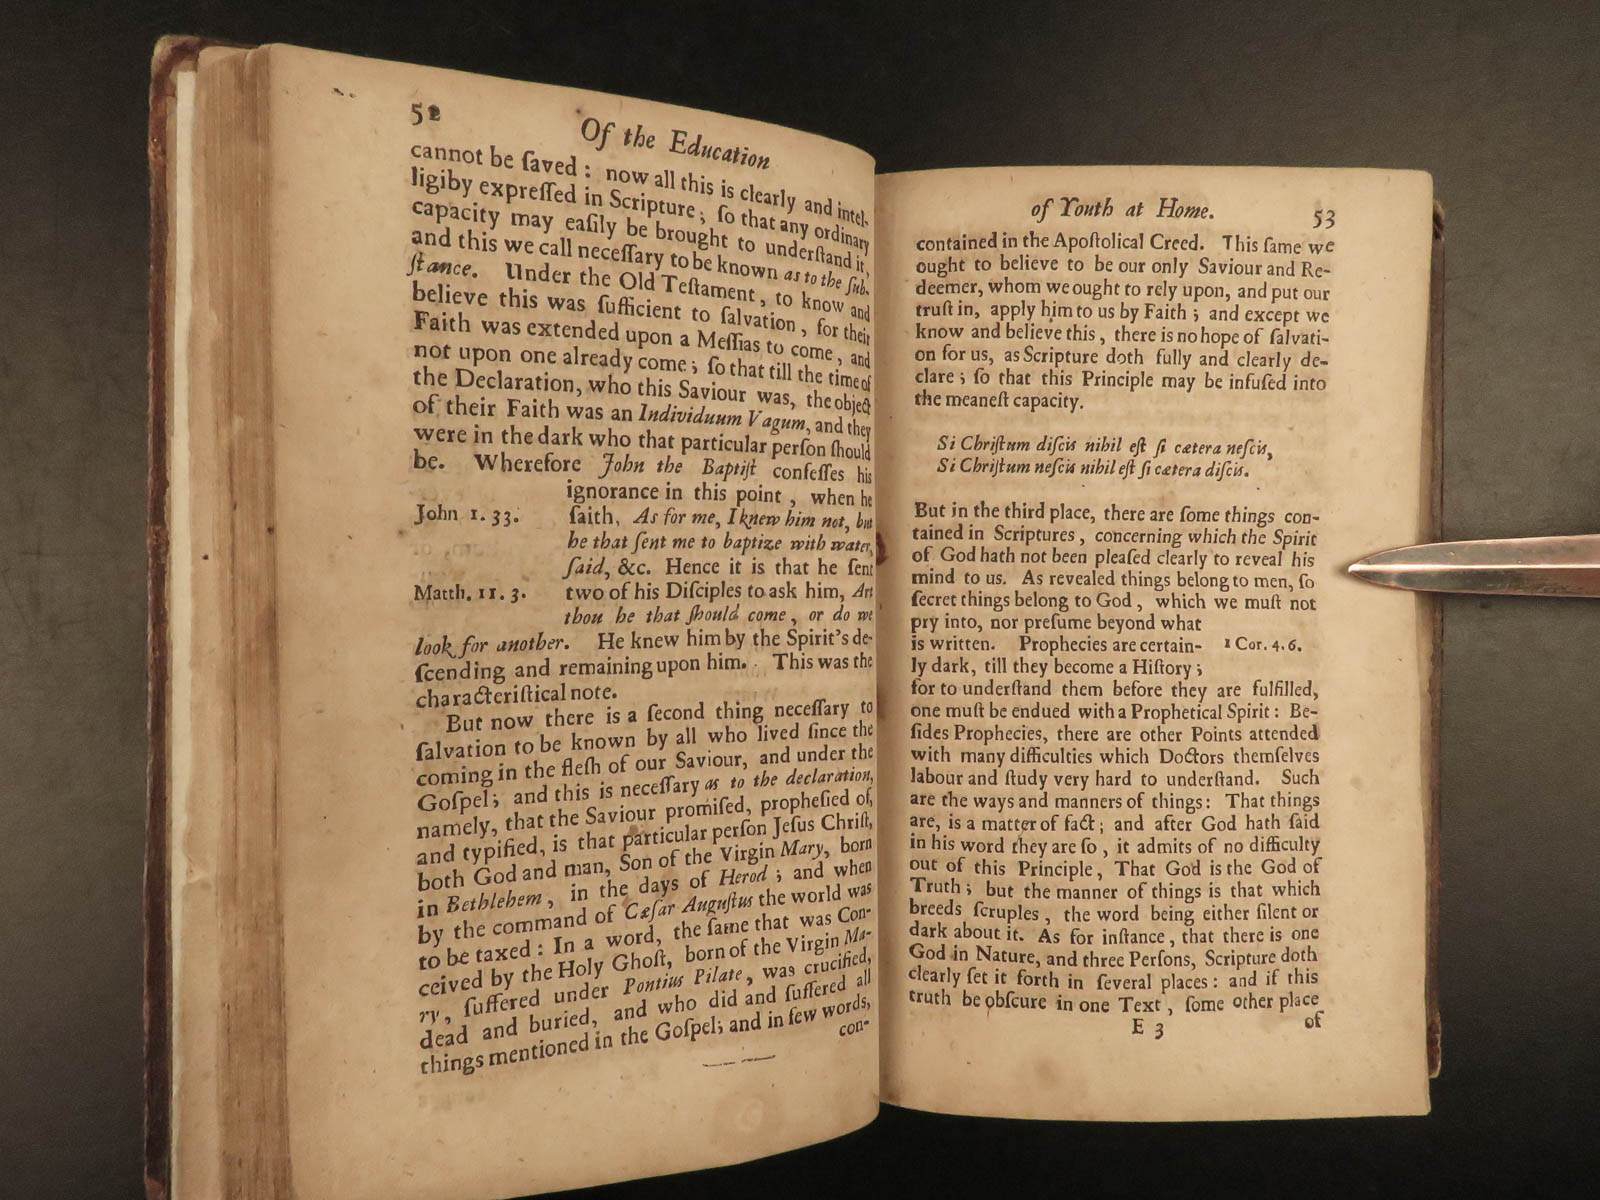 52
Of the Education
cannot be ſaved : now all this is clearly and intel-
ligiby expreſſed in Scripture ; ſo that any ordinary
capacity may eaſily be brought to underſtand it,
and this we call neceſſary to be known as to the ſub-
ſtance. Under the Old Teſtament, to know and
believe this was ſufficient to ſalvation, for their
Faith was extended upon a Meſſias to come, and
not upon one already come ; ſo that till the time of
the Declaration, who this Saviour was, the object
of their Faith was an Individuum Vagum, and they
were in the dark who that particular perſon ſhould
be. Wherefore John the Baptiſt confeſſes his
ignorance in this point, when he
John 1. 33. ſaith, As for me, I knew him not, but
he that ſent me to baptize with water,
ſaid, &c. Hence it is that he ſent
Matth. 11. 3. two of his Diſciples to ask him, Art
thou he that ſhould come, or do we
look for another. He knew him by the Spirit's de-
ſcending and remaining upon him. This was the
characteriſtical note.
But now there is a ſecond thing neceſſary to
ſalvation to be known by all who lived ſince the
coming in the fleſh of our Saviour, and under the
Goſpel ; and this is neceſſary as to the declaration,
namely, that the Saviour promiſed, propheſied of,
and typified, is that particular perſon Jeſus Chriſt,
both God and man, Son of the Virgin Mary, born
in Bethlehem, in the days of Herod ; and when
by the command of Cæſar Auguſtus the world was
to be taxed : In a word, the ſame that was Con-
ceived by the Holy Ghoſt, born of the Virgin Ma-
ry, ſuffered under Pontius Pilate, was crucified,
dead and buried, and who did and ſuffered all
things mentioned in the Goſpel ; and in few words,
con-
of Youth at Home. 53
contained in the Apoſtolical Creed. This ſame we
ought to believe to be our only Saviour and Re-
deemer, whom we ought to rely upon, and put our
truſt in, apply him to us by Faith ; and except we
know and believe this, there is no hope of ſalvati-
on for us, as Scripture doth fully and clearly de-
clare ; ſo that this Principle may be infuſed into
the meaneſt capacity.
Si Chriſtum diſcis nihil eſt ſi cætera neſcis,
Si Chriſtum neſcis nihil eſt ſi cætera diſcis.
But in the third place, there are ſome things con-
tained in Scriptures, concerning which the Spirit
of God hath not been pleaſed clearly to reveal his
mind to us. As revealed things belong to men, ſo
ſecret things belong to God, which we muſt not
pry into, nor preſume beyond what
is written. Prophecies are certain- 1 Cor. 4. 6.
ly dark, till they become a Hiſtory ;
for to underſtand them before they are fulfilled,
one muſt be endued with a Prophetical Spirit : Be-
ſides Prophecies, there are other Points attended
with many difficulties which Doctors themſelves
labour and ſtudy very hard to underſtand. Such
are the ways and manners of things : That things
are, is a matter of fact ; and after God hath ſaid
in his word they are ſo, it admits of no difficulty
out of this Principle, That God is the God of
Truth ; but the manner of things is that which
breeds ſcruples, the word being either ſilent or
dark about it. As for inſtance, that there is one
God in Nature, and three Perſons, Scripture doth
clearly ſet it forth in ſeveral places : and if this
truth be obſcure in one Text, ſome other place
E 3 of